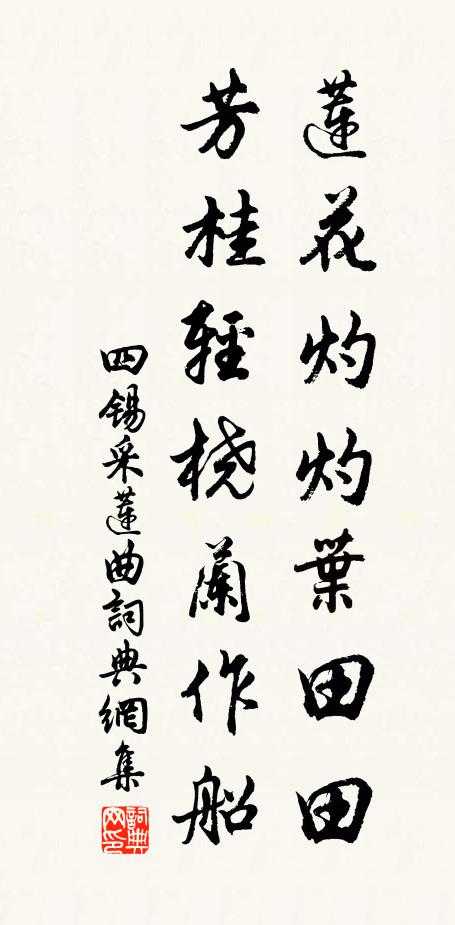 蓮花灼灼葉田田
芳桂輕橈蘭作船
四錫采蓮曲詞典網集
詞典网印